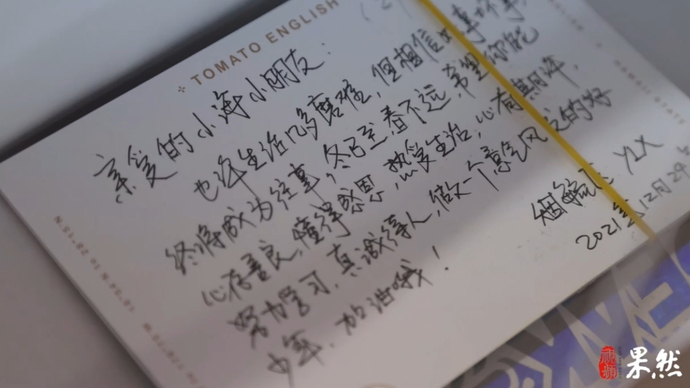 TOMATO ENGLISH
亲爱的小海小朋友:
也许生活几多磨难,但相信
终将成为往事,冬已至春不远,希望你能
心存善良,懂得感恩,热爱生活,心有期许,
努力学习,真诚待人,做一个意气风发的好
少年,加油哦!
YLX
2021年12月29日
果然